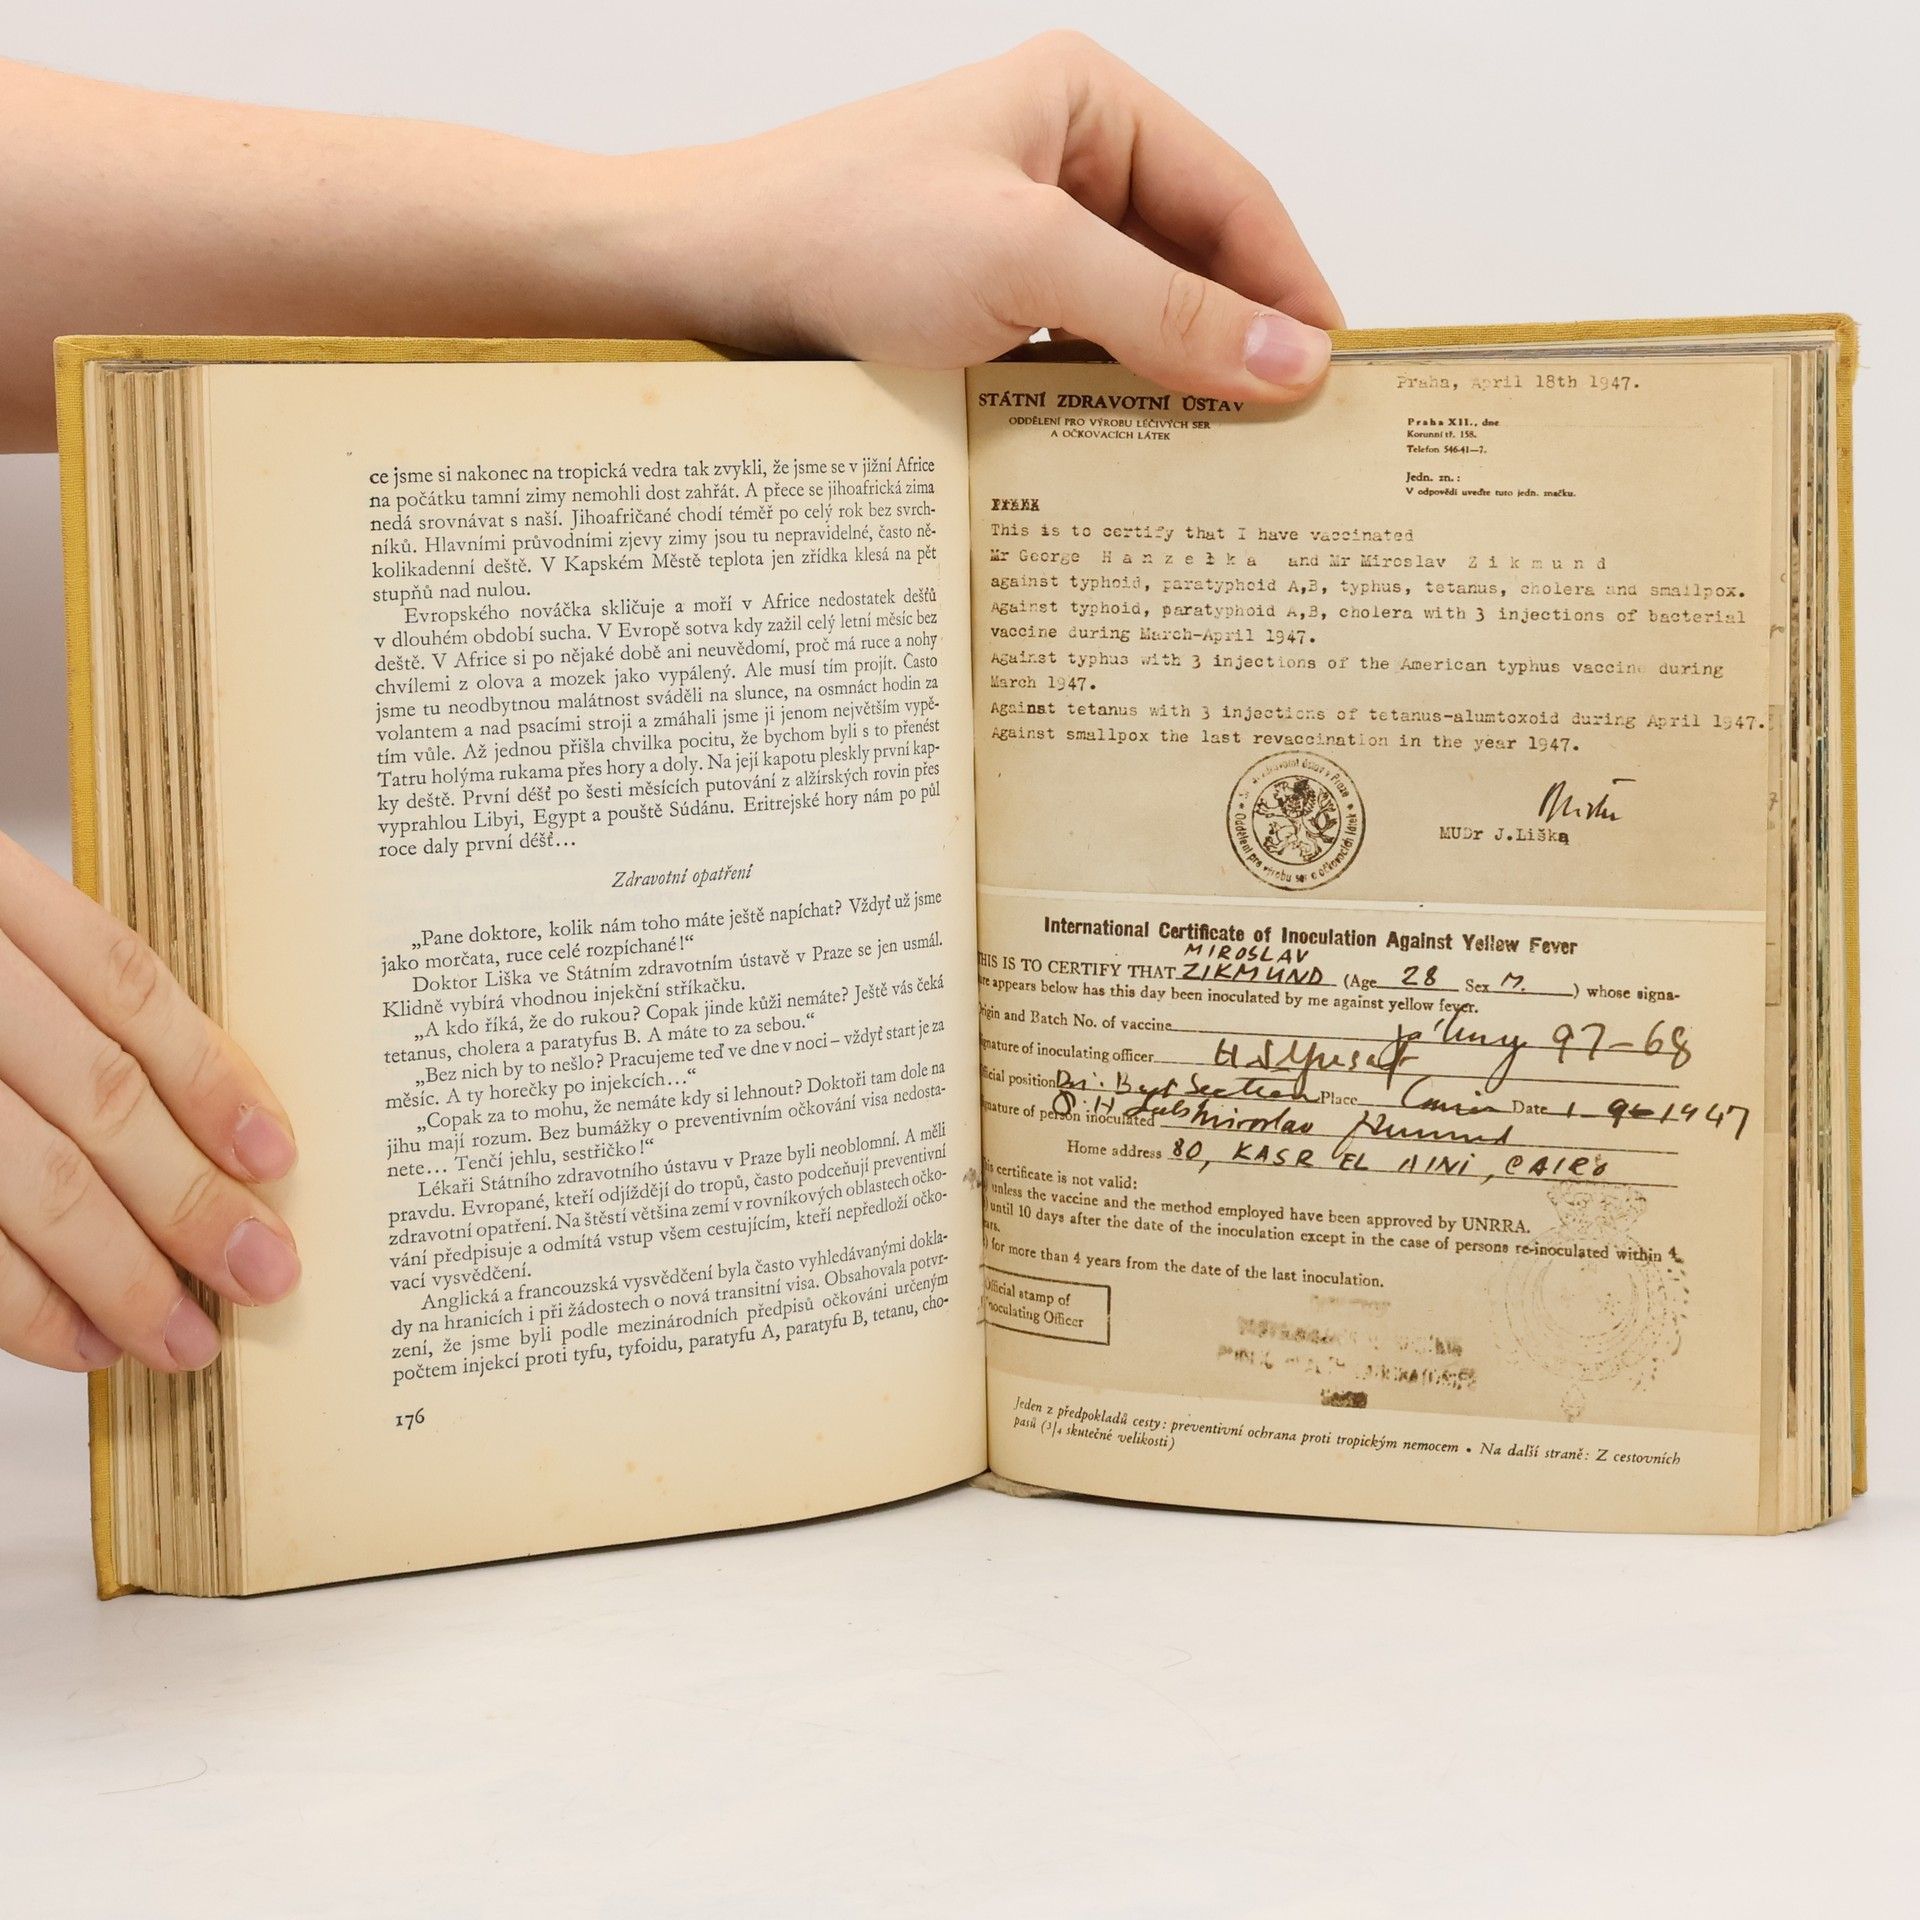 ce jsme si nakonec na tropická vedra tak zvykli, že jsme se v jižní Africe
na počátku tamní zimy nemohli dost zahřát. A přece se jihoafrická zima
nedá srovnávat s naší. Jihoafričané chodí téměř po celý rok bez svrch-
níků. Hlavními průvodními zjevy zimy jsou tu nepravidelné, často ně-
kolikadenní deště. V Kapském Městě teplota jen zřídka klesá na pět
stupňů nad nulou.
Evropského nováčka skličuje a moří v Africe nedostatek dešťů
v dlouhém období sucha. V Evropě sotva kdy zažil celý letní měsíc bez
deště. V Africe si po nějaké době ani neuvědomí, proč má ruce a nohy
chvílemi z olova a mozek jako vypálený. Ale musí tím projít. Často
jsme tu neodbytnou malátnost sváděli na slunce, na osmnáct hodin za
volantem a nad psacími stroji a zmáhali jsme ji jenom největším vypě-
tím vůle. Až jednou přišla chvilka pocitu, že bychom byli s to přenést
Tatru holýma rukama přes hory a doly. Na její kapotu pleskly první kap-
ky deště. První déšť po šesti měsících putování z alžírských rovin přes
vyprahlou Libyi, Egypt a pouště Súdánu. Eritrejské hory nám po půl
roce daly první déšť…
Zdravotní opatření
„Pane doktore, kolik nám toho máte ještě napíchat? Vždyť už jsme
jako morčata, ruce celé rozpíchané!“
Doktor Liška ve Státním zdravotním ústavě v Praze se jen usmál.
Klidně vybírá vhodnou injekční stříkačku.
„A kdo říká, že do rukou? Copak jinde kůži nemáte? Ještě vás čeká
tetanus, cholera a paratyfus B. A máte to za sebou.“
„Bez nich by to nešlo? Pracujeme teď ve dne v noci – vždyť start je za
měsíc. A ty horečky po injekcích…“
„Copak za to mohu, že nemáte kdy si lehnout? Doktoři tam dole na
jihu mají rozum. Bez bumážky o preventivním očkování visa nedosta-
nete… Tenčí jehlu, sestřičko!“
Lékaři Státního zdravotního ústavu v Praze byli neoblomní. A měli
pravdu. Evropané, kteří odjíždějí do tropů, často podceňují preventivní
zdravotní opatření. Na štěstí většina zemí v rovníkových oblastech očko-
vání předpisuje a odmítá vstup všem cestujícím, kteří nepředloží očko-
vací vysvědčení.
Anglická a francouzská vysvědčení byla často vyhledávanými dokla-
dy na hranicích i při žádostech o nová transitní visa. Obsahovala potvr-
zení, že jsme byli podle mezinárodních předpisů očkováni určeným
počtem injekcí proti tyfu, tyfoidu, paratyfu A, paratyfu B, tetanu, cho-
176
Praha, April 18th 1947.
STÁTNÍ ZDRAVOTNÍ ÚSTAV
ODDĚLENÍ PRO VÝROBU LÉČIVÝCH SER
A OČKOVACÍCH LÁTEK
Praha XII., dne
Korunní tř. 158.
Telefon 546-41—7.
Jedn. zn.:
V odpovědi uveďte tuto jedn. značku.
This is to certify that I have vaccinated
Mr George Hanzelka and Mr Miroslav Zikmund
against typhoid, paratyphoid A,B, typhus, tetanus, cholera and smallpox.
Against typhoid, paratyphoid A,B, cholera with 3 injections of bacterial
vaccine during March-April 1947.
Against typhus with 3 injections of the American typhus vaccine during
March 1947.
Against tetanus with 3 injections of tetanus-alumtoxoid during April 1947.
Against smallpox the last revaccination in the year 1947.
MUDr J.Liška
International Certificate of Inoculation Against Yellow Fever
MIROSLAV
THIS IS TO CERTIFY THAT ZIKMUND (Age 28 Sex M. ) whose signa-
appears below has this day been inoculated by me against yellow fever.
Origin and Batch No. of vaccine 97-68
signature of inoculating officer
official position Place Cairo Date 1-9-1947
signature of person inoculated Miroslav Zikmund
Home address 80, KASR EL AINI, CAIRO
certificate is not valid:
unless the vaccine and the method employed have been approved by UNRRA.
until 10 days after the date of the inoculation except in the case of persons re-inoculated within 4
for more than 4 years from the date of the last inoculation.
Official stamp of
Inoculating Officer
Jeden z předpokladů cesty: preventivní ochrana proti tropickým nemocem • Na další straně: Z cestovních
pasů (3/4 skutečné velikosti)